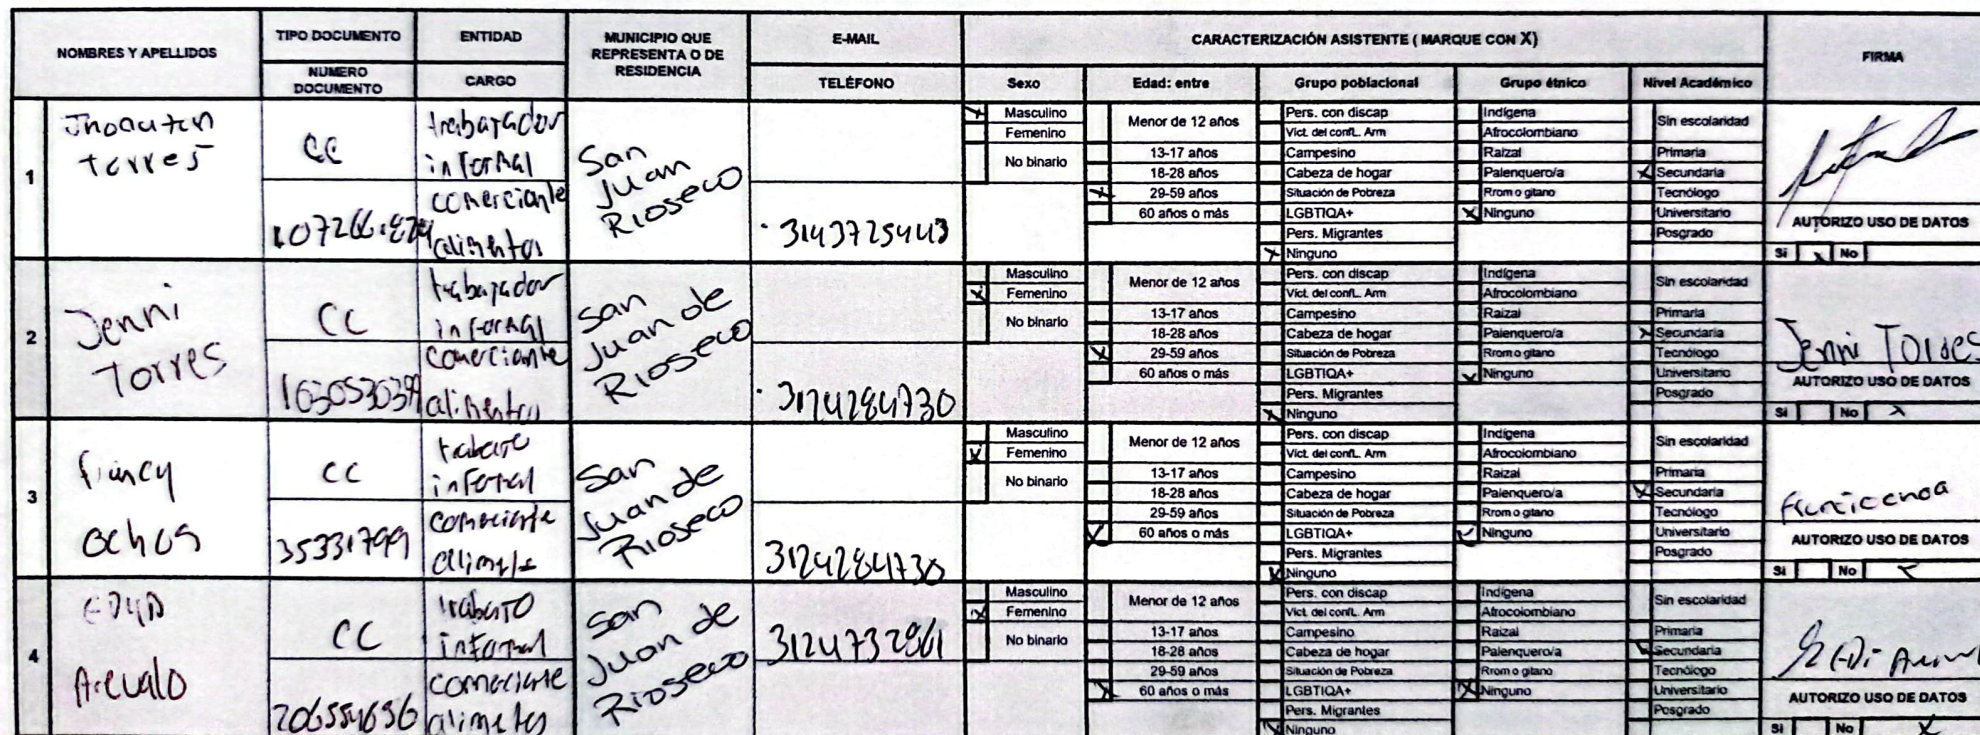 NOMBRES Y APELLIDOS
TIPO DOCUMENTO
NUMERO DOCUMENTO
ENTIDAD
CARGO
MUNICIPIO QUE REPRESENTA O DE RESIDENCIA
E-MAIL
TELÉFONO
CARACTERIZACIÓN ASISTENTE ( MARQUE CON X)
Sexo
Edad: entre
Grupo poblacional
Grupo étnico
Nivel Académico
FIRMA
1
Torres
CC
trabajador
informal
comerciante
alimentos
San
Juan
Rioseco
Masculino
Femenino
No binario
Menor de 12 años
13-17 años
18-28 años
29-59 años
60 años o más
Pers. con discap
Vict. del confl. Arm
Campesino
Cabeza de hogar
Situación de Pobreza
LGBTIQA+
Pers. Migrantes
Ninguno
Indígena
Afrocolombiano
Raizal
Palenquero/a
Rrom o gitano
Ninguno
Sin escolaridad
Primaria
Secundaria
Tecnólogo
Universitario
Posgrado
AUTORIZO USO DE DATOS
Si x No
2
Jenni
Torres
CC
trabajador
informal
comerciante
alimentos
San
Juan de
Rioseco
3124284730
Masculino
Femenino
No binario
Menor de 12 años
13-17 años
18-28 años
29-59 años
60 años o más
Pers. con discap
Vict. del confl. Arm
Campesino
Cabeza de hogar
Situación de Pobreza
LGBTIQA+
Pers. Migrantes
Ninguno
Indígena
Afrocolombiano
Raizal
Palenquero/a
Rrom o gitano
Ninguno
Sin escolaridad
Primaria
Secundaria
Tecnólogo
Universitario
Posgrado
Jenni Torres
AUTORIZO USO DE DATOS
Si No x
3
ochoa
CC
35331799
trabajo
informal
San
Juan de
Rioseco
3124284730
Masculino
Femenino
No binario
Menor de 12 años
13-17 años
18-28 años
29-59 años
60 años o más
Pers. con discap
Vict. del confl. Arm
Campesino
Cabeza de hogar
Situación de Pobreza
LGBTIQA+
Pers. Migrantes
Ninguno
Indígena
Afrocolombiano
Raizal
Palenquero/a
Rrom o gitano
Ninguno
Sin escolaridad
Primaria
Secundaria
Tecnólogo
Universitario
Posgrado
AUTORIZO USO DE DATOS
Si No x
4
Arevalo
CC
trabajo
informal
San
Juan de
Rioseco
3124732861
Masculino
Femenino
No binario
Menor de 12 años
13-17 años
18-28 años
29-59 años
60 años o más
Pers. con discap
Vict. del confl. Arm
Campesino
Cabeza de hogar
Situación de Pobreza
LGBTIQA+
Pers. Migrantes
Ninguno
Indígena
Afrocolombiano
Raizal
Palenquero/a
Rrom o gitano
Ninguno
Sin escolaridad
Primaria
Secundaria
Tecnólogo
Universitario
Posgrado
AUTORIZO USO DE DATOS
Si No x